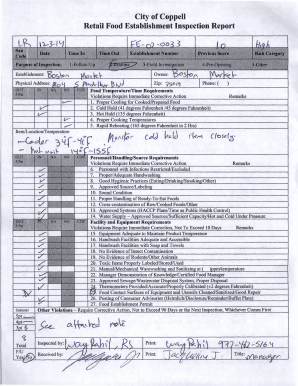 City of Coppell
Retail Food Establishment Inspection Report
12-3-14 FE-02-0033 10 High
Date Time In Time Out Establishment Number Previous Score Risk Category
Purpose of Inspection: 1-Follow-Up 3-Field Investigation 4-Pre-Opening 5-Other
Establishment: Boston Market Owner: Boston Market
Physical Address: Zip: 75019 Phone: ( )
Food Temperature/Time Requirements
Violations Require Immediate Corrective Action Remarks
1. Proper Cooling for Cooked/Prepared Food
2. Cold Hold (41 degrees Fahrenheit/45 degrees Fahrenheit)
3. Hot Hold (135 degrees Fahrenheit)
4. Proper Cooking Temperatures
5. Rapid Reheating (165 degrees Fahrenheit in 2 Hrs)
Item/Location/Temperature: Monitor cold held item closely.
Personnel/Handling/Source Requirements
Violations Require Immediate Corrective Action Remarks
6. Personnel with Infections Restricted/Excluded
7. Proper/Adequate Handwashing
8. Good Hygienic Practices (Eating/Drinking/Smoking/Other)
9. Approved Source/Labeling
10. Sound Condition
11. Proper Handling of Ready-To-Eat Foods
12. Cross-contamination of Raw/Cooked Foods/Other
13. Approved Systems (HACCP Plans/Time as Public Health Control)
14. Water Supply - Approved Sources/Sufficient Capacity/Hot and Cold Under Pressure
Facility and Equipment Requirements
Violations Require Immediate Correction, Not To Exceed 10 Days Remarks
15. Equipment Adequate to Maintain Product Temperature
16. Handwash Facilities Adequate and Accessible
17. Handwash Facilities with Soap and Towels
18. No Evidence of Insect Contamination
19. No Evidence of Rodents/Other Animals
20. Toxic Items Properly Labeled/Stored/Used
21. Manual/Mechanical Warewashing and Sanitizing at ( )ppm/temperature
22. Manager Demonstration of Knowledge/Certified Food Manager
23. Approved Sewage/Wastewater Disposal System, Proper Disposal
24. Thermometers Provided/Accurate/Properly Calibrated (±2 degrees Fahrenheit)
25. Food Contact Surfaces of Equipment and Utensils Cleaned/Sanitized/Good Repair
26. Posting of Consumer Advisories (Heimlich/Disclosure/Reminder/Buffet Plate)
27. Food Establishment Permit
Other Violations - Require Corrective Action, Not to Exceed 90 Days or the Next Inspection, Whichever Comes First
See attached note
Total Inspected by: Print: 972-462-5164
Received by: Print: Title: manager